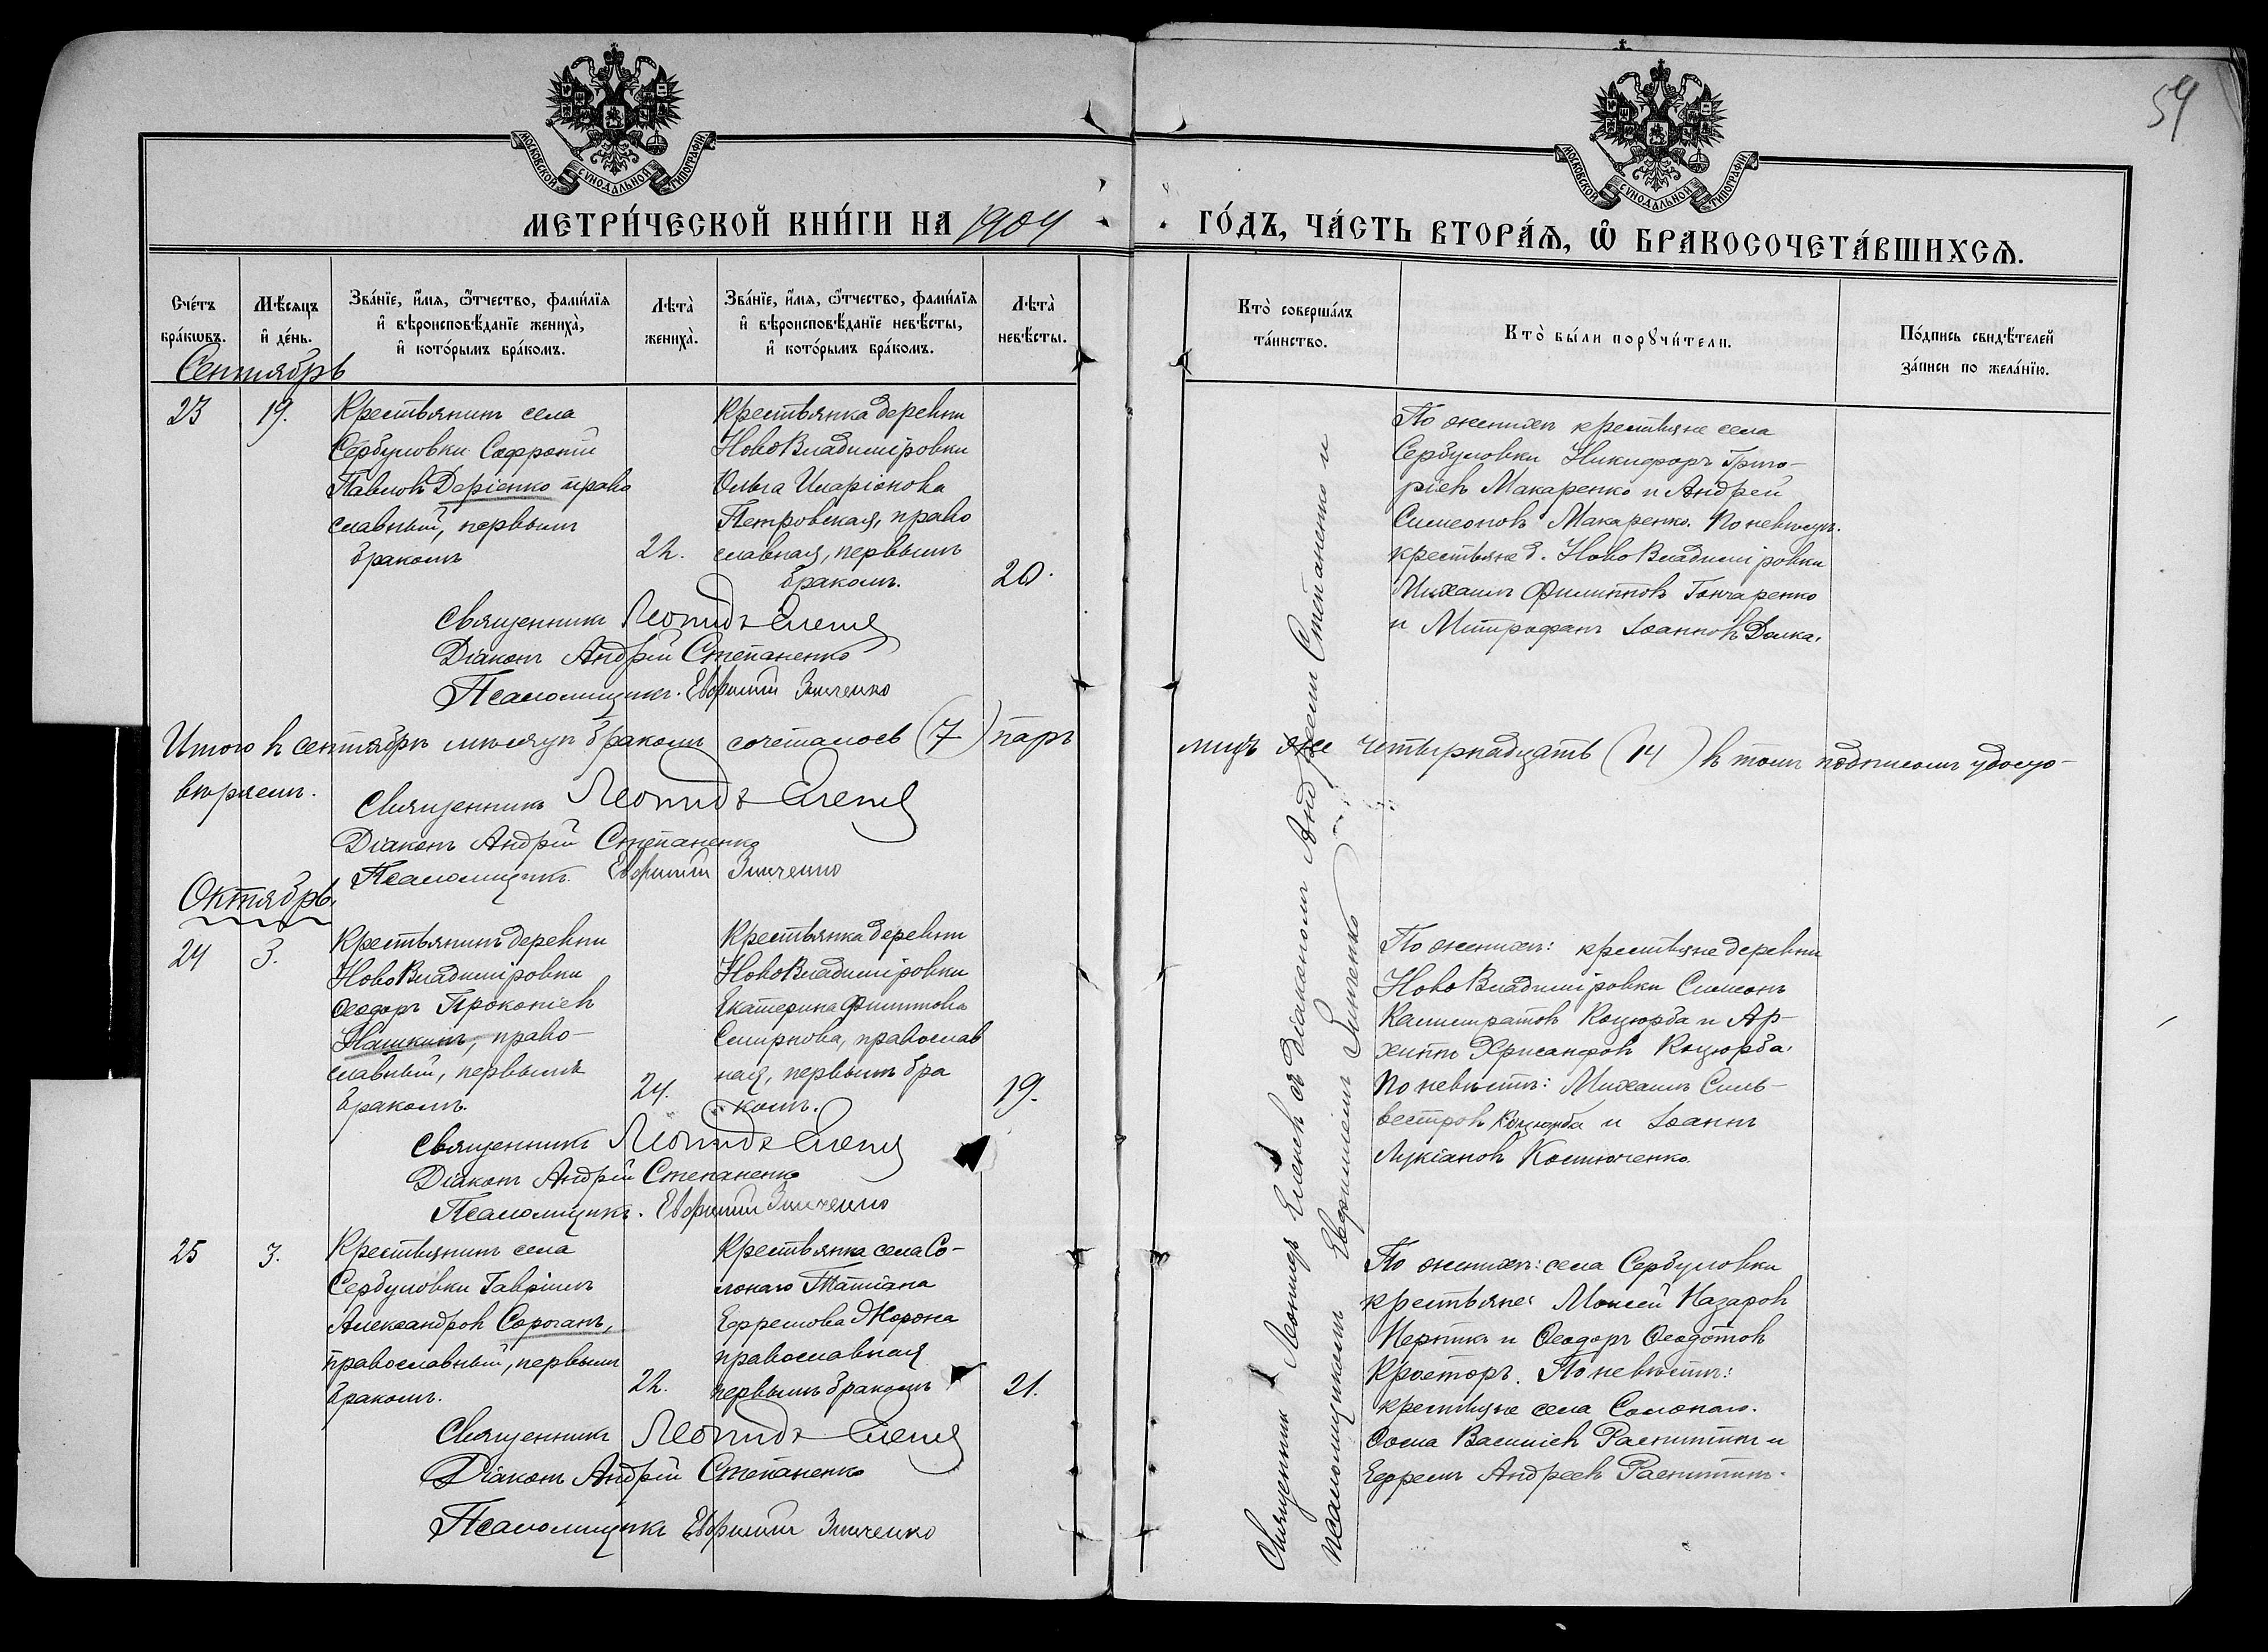 54
МОСКОВСКОЙ СѴНОДАЛЬНОЙ ТИПОГРАФІИ
МОСКОВСКОЙ СѴНОДАЛЬНОЙ ТИПОГРАФІИ
МЕТРИ́ЧЕСКОЙ КНИ́ГИ НА 1904
ГО́ДЪ, ЧА́СТЬ ВТОРА́Ѧ, Ѡ҆ БРАКОСОЧЕТА́ВШИХСѦ.
Сче́тъ
бра́кѡвъ.
Мѣ́сяцъ
и҆ де́нь.
Зва́нїе, и҆́мя, ѻ҆́тчество, фами́лїя
и҆ вѣроисповѣ́данїе жениха̀,
и҆ кото́рымъ бра́комъ.
Лѣта̀
жениха̀.
Зва́нїе, и҆́мя, ѻ҆́тчество, фами́лїя
и҆ вѣроисповѣ́данїе невѣ́сты,
и҆ кото́рымъ бра́комъ.
Лѣта̀
невѣ́сты.
Кто̀ соверша́лъ
та́инство.
Кто̀ бы́ли порꙋчи́тели.
По́дпись свидѣ́телей
за́писи по жела́нїю.
Сентябрь
23
19.
Крестьянинъ села
Сербуловки Софроній
Павловъ Деріенко право
славный, первымъ
бракомъ
22.
Крестьянка деревни
НовоВладиміровки
Ольга Иларіонова
Петровская, право
славная, первымъ
бракомъ.
20.
По женихѣ крестьяне села
Сербуловки Никифоръ Григо-
рьевъ Макаренко и Андрей
Симеоновъ Макаренко. По невѣстѣ.
крестьяне д. НовоВладиміровки
Михаилъ Филипповъ Гончаренко
и Митрофанъ Іоанновъ
Священникъ Леонидъ Еленевъ
Діаконъ Андрей Степаненко
Псаломщикъ. Евфимій Зинченко
Итого въ сентябрѣ мѣсяцѣ бракомъ сочеталось (7) паръ
лицъ же четырнадцать (14) въ томъ подписомъ удосто-
вѣряемъ.
Священникъ Леонидъ Еленевъ
Діаконъ Андрей Степаненко
Псаломщикъ Евфимій Зинченко
Октябрь.
24
3.
Крестьянинъ деревни
НовоВладиміровки
Ѳеодоръ Прокопіевъ
Нашкинъ, право-
славный, первымъ
бракомъ.
24.
Крестьянка деревни
НовоВладиміровки
Екатерина Филиппова
Смирнова, православ
ная, первымъ бра
комъ.
19.
По женихѣ: крестьяне деревни
НовоВладиміровки Симеонъ
Калистратовъ Коцюрба и Ар-
хиппъ Хрисанфовъ Коцюрба.
По невѣстѣ: Михаилъ Силь-
вестровъ Коцюрба и Іоаннъ
Лукіановъ Костюченко.
Священникъ Леонидъ Еленевъ
Діаконъ Андрей Степаненко
Псаломщикъ. Евфимій Зинченко
25
3.
Крестьянинъ села
Сербуловки Гавріилъ
Александровъ Сороганъ,
православный, первымъ
бракомъ.
22.
Крестьянка села Со-
лонаго Татіана
Ефремова
православная
первымъ бракомъ
21.
По женихѣ: села Сербуловки
крестьяне: Моисей Назаровъ
и Ѳеодоръ Ѳеодотовъ
По невѣстѣ:
крестьяне села Солонаго.
Ѳома Василіевъ Распитинъ и
Ефремъ Андреевъ Распитинъ.
Священникъ Леонидъ Еленевъ
Діаконъ Андрей Степаненко
Псаломщикъ Евфимій Зинченко
Священникъ Леонидъ Еленевъ съ діакономъ Андреемъ Степаненко и
псаломщикомъ Евфиміемъ Зинченко